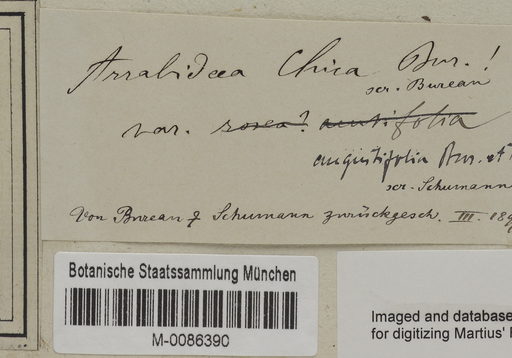 Arrabidaea Chica Bur. !
scr. Bureau
var. rosea? acutifolia
angustifolia Bur. et
scr. Schumann
Von Bureau & Schumann zurückgesch. III. 189
Botanische Staatssammlung München
M-0086390
Imaged and database
for digitizing Martius'